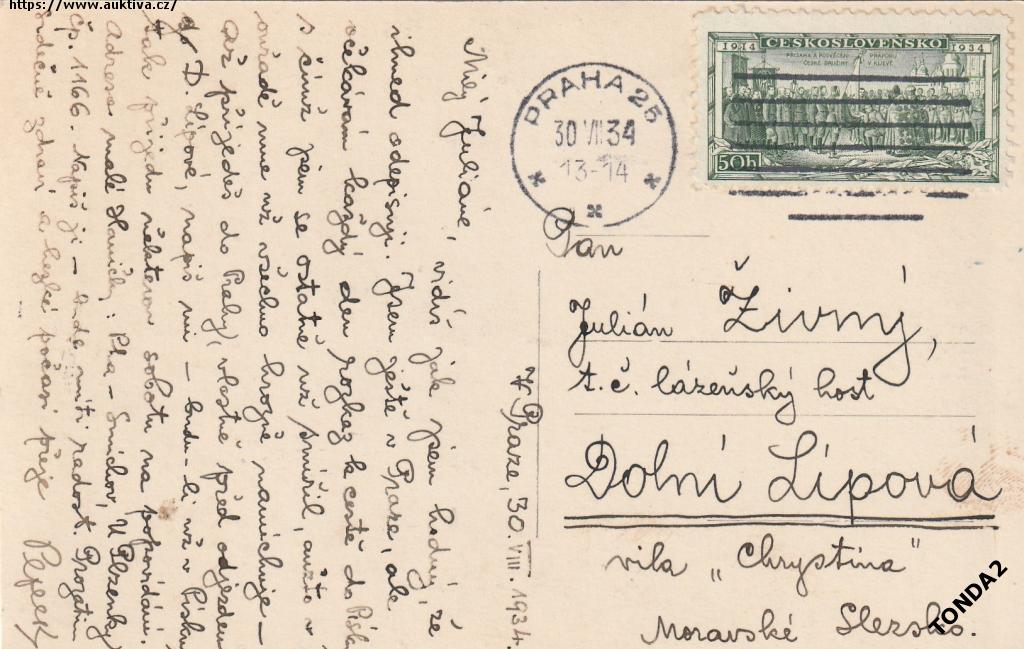 https://www.auktiva.cz/
Milý Juliáne, vidíš jak jsem hodný, že
ihned odepisuji. Jsem ještě v Praze, ale
očekávám každý den rozkaz k cestě do Písku
s čímž jsem se ostatně už smířil, ančto v
úřadě mne už všechno hrozně namíchuje –
Až přijedeš do Prahy, vlastně před odjezdem
z D. Lipové, napiš mi – budu-li už v Písku,
tak přijedu některou sobotu na popovídání.
Adresa malé Haničky: Pha – Smíchov, U Plzenky
čp. 1166. Napiš jí – bude míti radost. Prozatím
srdečně zdraví a hezké počasí přeje
Pepek
V Praze, 30. VIII. 1934.
1914 ČESKOSLOVENSKO 1934
PŘÍSAHA A POSVĚCENÍ PRAPORU
ČESKÉ DRUŽINY V KIJEVĚ
50h
PRAHA 25
30 VIII 34
13-14
Pan
Julián Živný,
t. č. lázeňský host
Dolní Lipová
vila „Chrystina"
Moravské Slezsko.
TONDA2